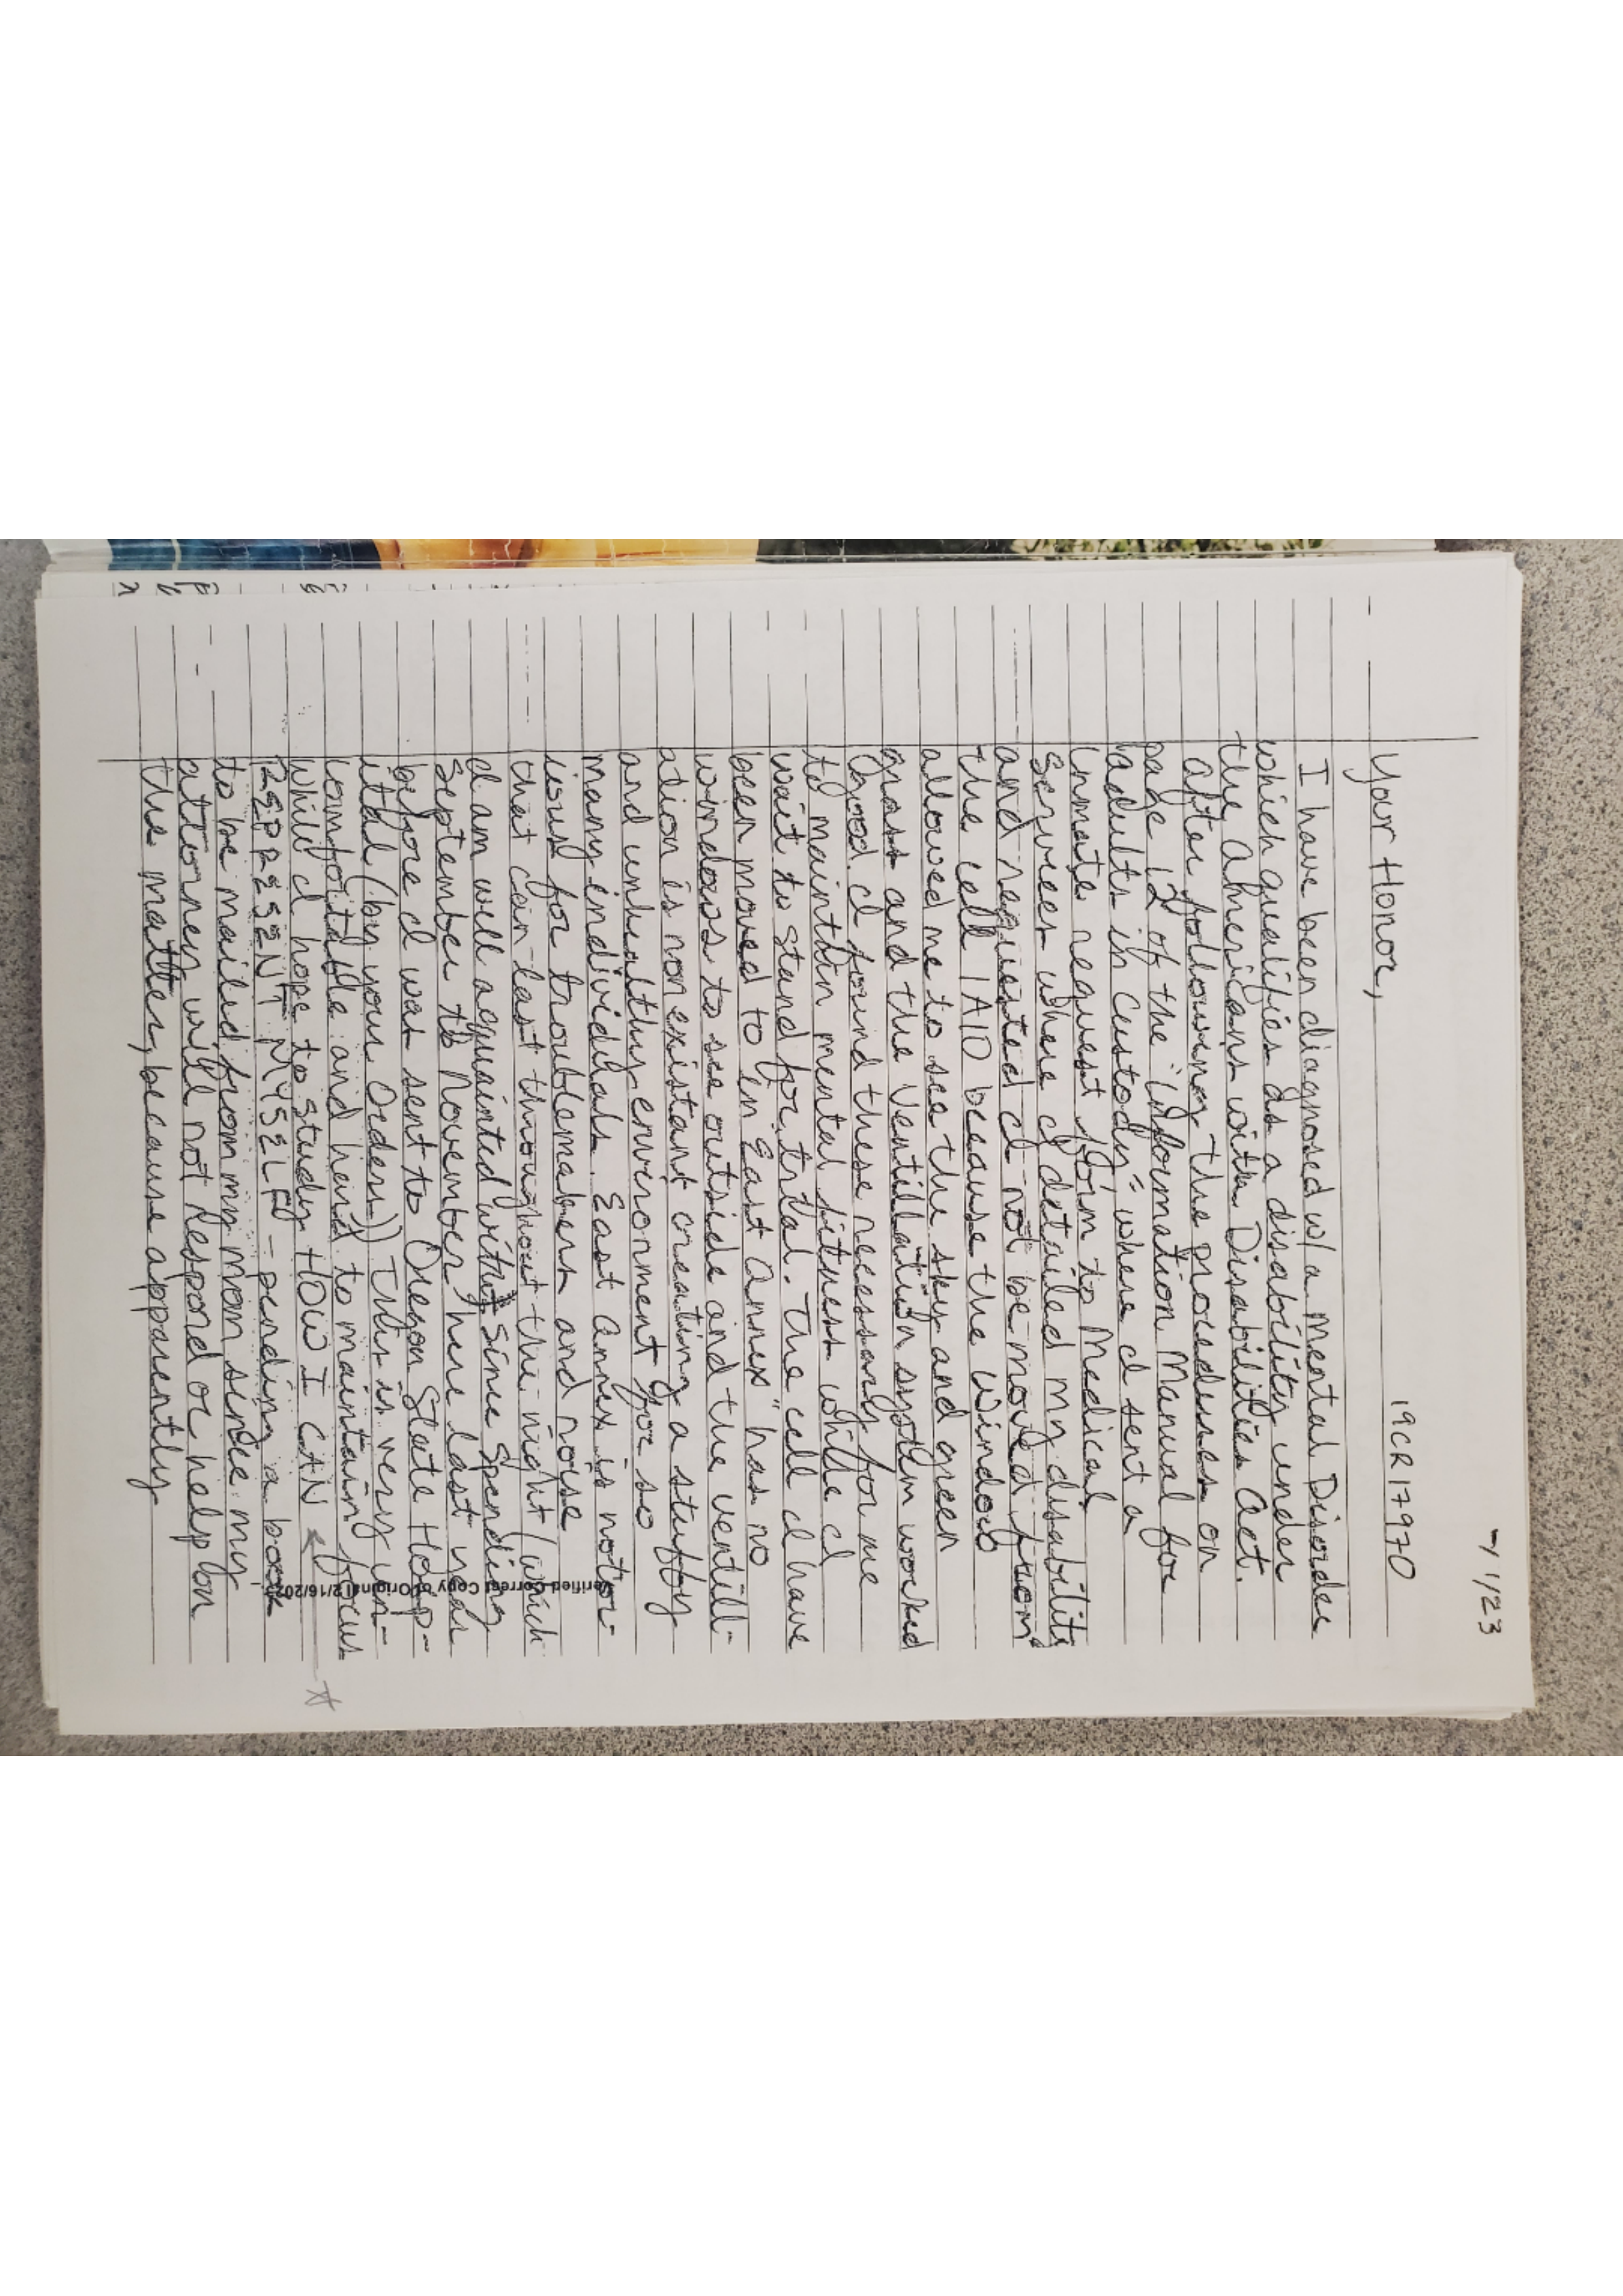 7/1/23
19CR17970
Your Honor,
I have been diagnosed w/a Mental Disorder
which qualifies as a disability under
the Americans with Disabilities Act.
After following the procedures on
page 12 of the "Information Manual for
adults in Custody", where I sent a
inmate request form to Medical
Services where I detailed my disability
and requested I not be moved from
the cell 1A10 because the window
allowed me to see the sky and green
grass and the ventilation system worked
good. I found these necessary for me
to maintain mental fitness while I
wait to stand for trial. The cell I have
been moved to in East Annex" has no
windows to see outside and the ventill-
ation is non existant creating a stuffy
and unhealthy environment for so
many individuals. East Annex is notor-
ious for troublemakers and noise
that can last throughout the night (which
I am well acquainted with since Spending
September to November here last year
before I was sent to Oregon State Hosp-
ital (by your Orders)) This is very un-
comfortable and hard to maintain focus
while I hope to study HOW I CAN
REPRESENT MYSELF - pending a book
to be mailed from my mom since my
attorney will not respond or help on
the matter, because apparently
Verified Correct Copy of Original 2/16/202